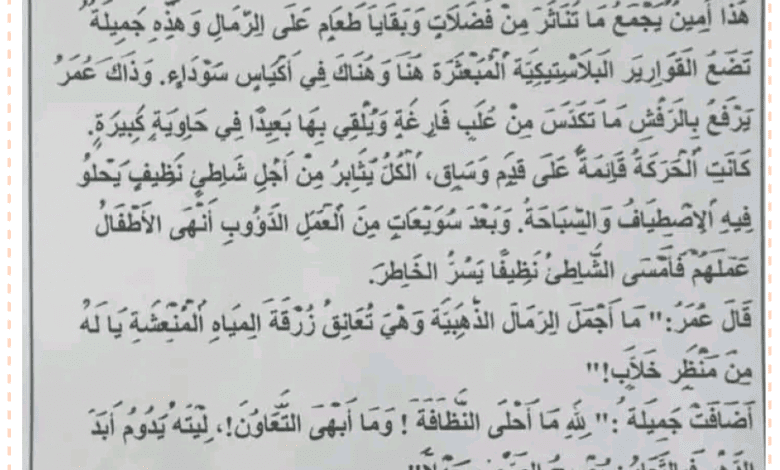 هَذَا أَمِينٌ يَجْمَعُ مَا تَنَاثَرَ مِنْ فَضَلَاتٍ وَبَقَايَا طَعَامٍ عَلَى الرِّمَالِ وَهَذِهِ جَمِيلَةُ
تَضَعُ القَوَارِيرَ البَلَاسْتِيكِيَّةَ الْمُبَعْثَرَةَ هُنَا وَهُنَاكَ فِي أَكْيَاسٍ سَوْدَاءٍ. وَذَاكَ عُمَرُ
يَرْفَعُ بِالرَّفْشِ مَا تَكَدَّسَ مِنْ عُلَبٍ فَارِغَةٍ وَيُلْقِي بِهَا بَعِيدًا فِي حَاوِيَةٍ كَبِيرَةٍ.
كَانَتِ الْحَرَكَةُ قَائِمَةٌ عَلَى قَدَمٍ وَسَاقٍ، الْكُلُّ يُثَابِرُ مِنْ أَجْلِ شَاطِئٍ نَظِيفٍ يَحْلُو
فِيهِ الِاصْطِيَافُ وَالسِّبَاحَةُ. وَبَعْدَ سُوَيْعَاتٍ مِنَ الْعَمَلِ الدَّؤُوبِ أَنْهَى الأَطْفَالُ
عَمَلَهُمْ فَأَمْسَى الشَّاطِئُ نَظِيفًا يَسُرُّ الخَاطِرَ.
قَالَ عُمَرُ:" مَا أَجْمَلَ الرِّمَالَ الذَّهَبِيَّةَ وَهْيَ تُعَانِقُ زُرْقَةَ المِيَاهِ الْمُنْعِشَةِ يَا لَهُ
مِنْ مَنْظَرٍ خَلَّابٍ!"
أَضَافَتْ جَمِيلَةُ :" لِلّهِ مَا أَحْلَى النَّظَافَةَ ! وَمَا أَبْهَى التَّعَاوُنَ!، لَيْتَهُ يَدُومُ أَبَدَ